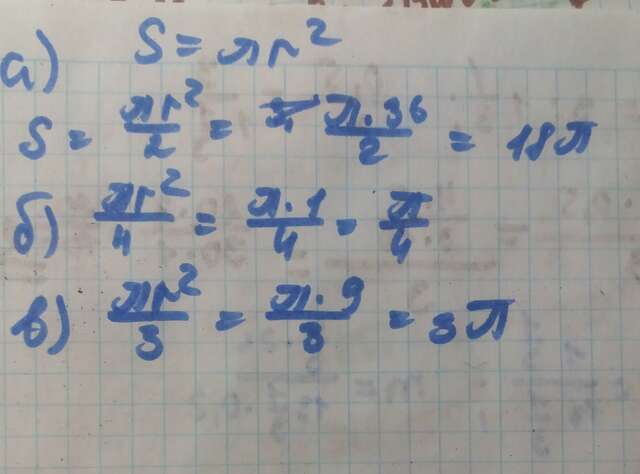 а) S = πr²
S = πr²/2 = π·36/2 = 18π
б) πr²/4 = π·1/4 = π/4
в) πr²/3 = π·9/3 = 3π